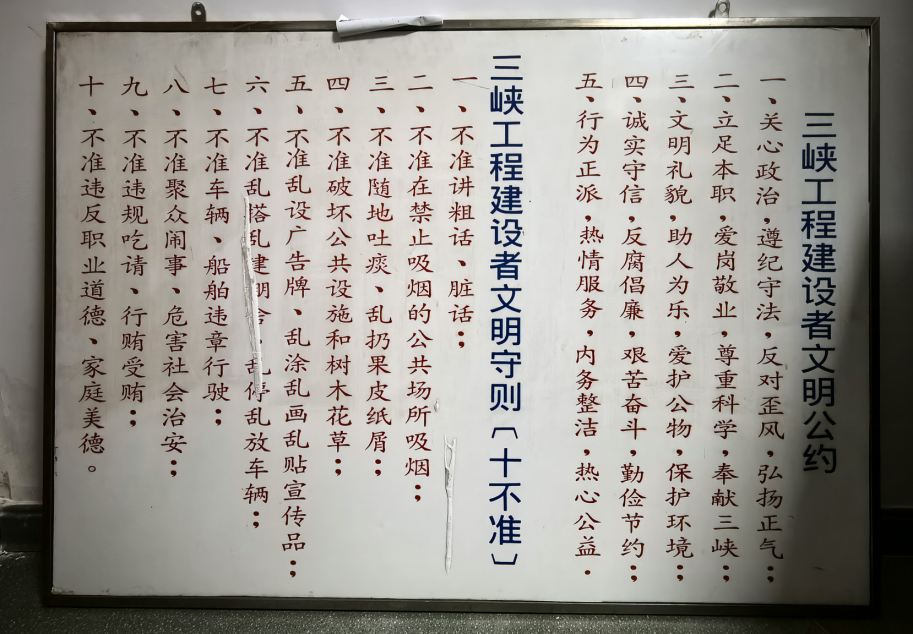 三峡工程建设者文明公约
一、关心政治,遵纪守法,反对歪风,弘扬正气;
二、立足本职,爱岗敬业,尊重科学,奉献三峡;
三、文明礼貌,助人为乐,爱护公物,保护环境;
四、诚实守信,反腐倡廉,艰苦奋斗,勤俭节约;
五、行为正派,热情服务,内务整洁,热心公益.
三峡工程建设者文明守则〔十不准〕
一、不准讲粗话、脏话;
二、不准在禁止吸烟的公共场所吸烟;
三、不准随地吐痰、乱扔果皮纸屑;
四、不准破坏公共设施和树木花草;
五、不准乱设广告牌、乱涂乱画乱贴宣传品;
六、不准乱搭乱建棚舍、乱停乱放车辆;
七、不准车辆、船舶违章行驶;
八、不准聚众闹事、危害社会治安;
九、不准违规吃请、行贿受贿;
十、不准违反职业道德、家庭美德。